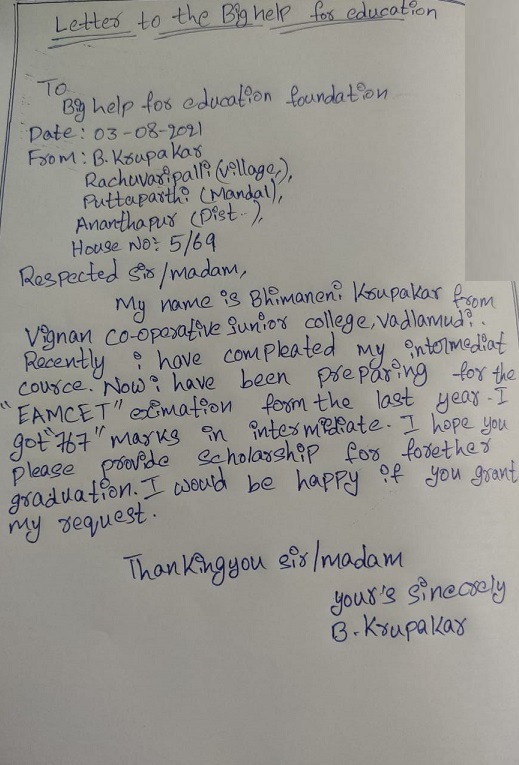 Letter to the Big help for education
To
Big help for education foundation
Date: 03-08-2021
From: B. Krupakar
Rachuvaripalli (village),
Puttaparthi (Mandal),
Ananthapur (Dist..),
House No: 5/69
Respected sir/madam,
My name is Bhimaneni Krupakar from
Vignan co-operative junior college, vadlamudi.
Recently i have compleated my intermediat
cource. Now i have been preparing for the
"EAMCET" eximation form the last year. I
got "767" marks in intermediate. I hope you
please provide scholarship for forether
graduation. I would be happy if you grant
my request.
Thankingyou sir/madam
your's sincerely
B. Krupakar